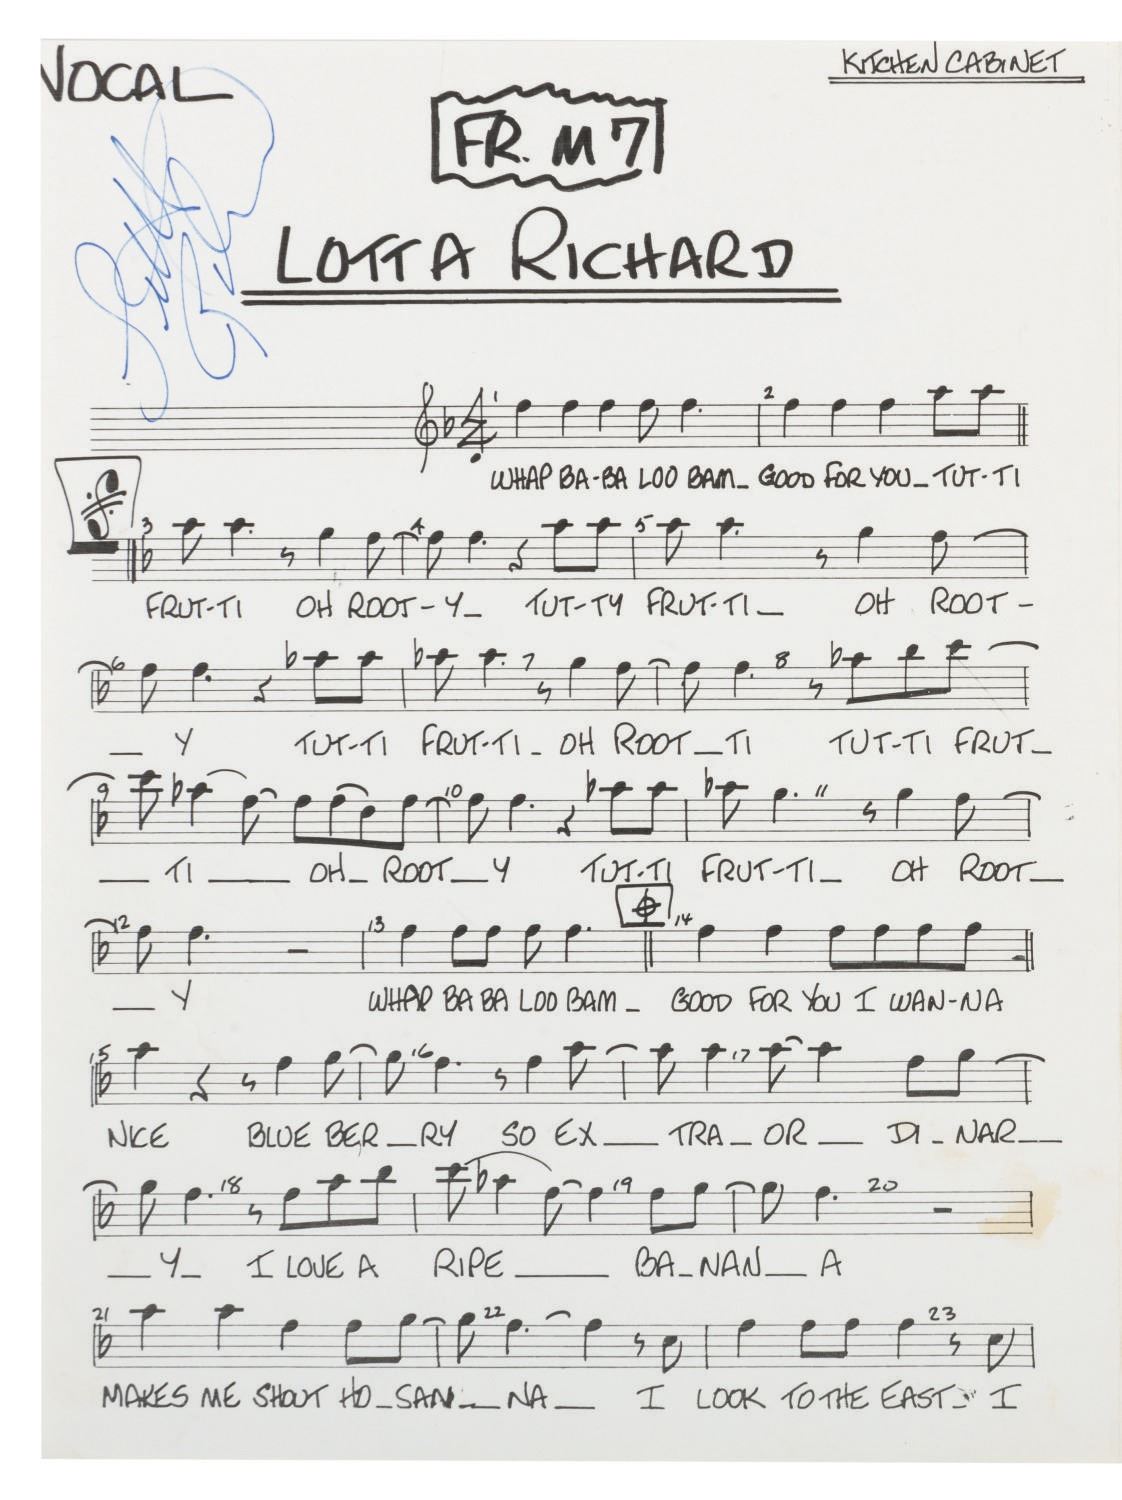 VOCAL
KITCHEN CABINET
FR. M 7
LOTTA RICHARD
2
WHAP BA-BA LOO BAM_ GOOD FOR YOU_ TUT-TI
3 4 5
FRUT-TI OH ROOT-Y_ TUT-TY FRUT-TI_ OH ROOT-
6 7 8
_ Y TUT-TI FRUT-TI_ OH ROOT_TI TUT-TI FRUT_
9 10 11
_ TI _ OH_ ROOT_Y TUT-TI FRUT-TI_ OH ROOT_
12 13 14
_ Y WHAP BA BA LOO BAM_ GOOD FOR YOU I WAN-NA
15 16 17
NICE BLUE BER_RY SO EX_ TRA_ OR_ DI_NAR_
18 19 20
_Y_ I LOVE A RIPE_ BA_NAN_ A
21 22 23
MAKES ME SHOUT HO_SAN_ NA_ I LOOK TO THE EAST_ I